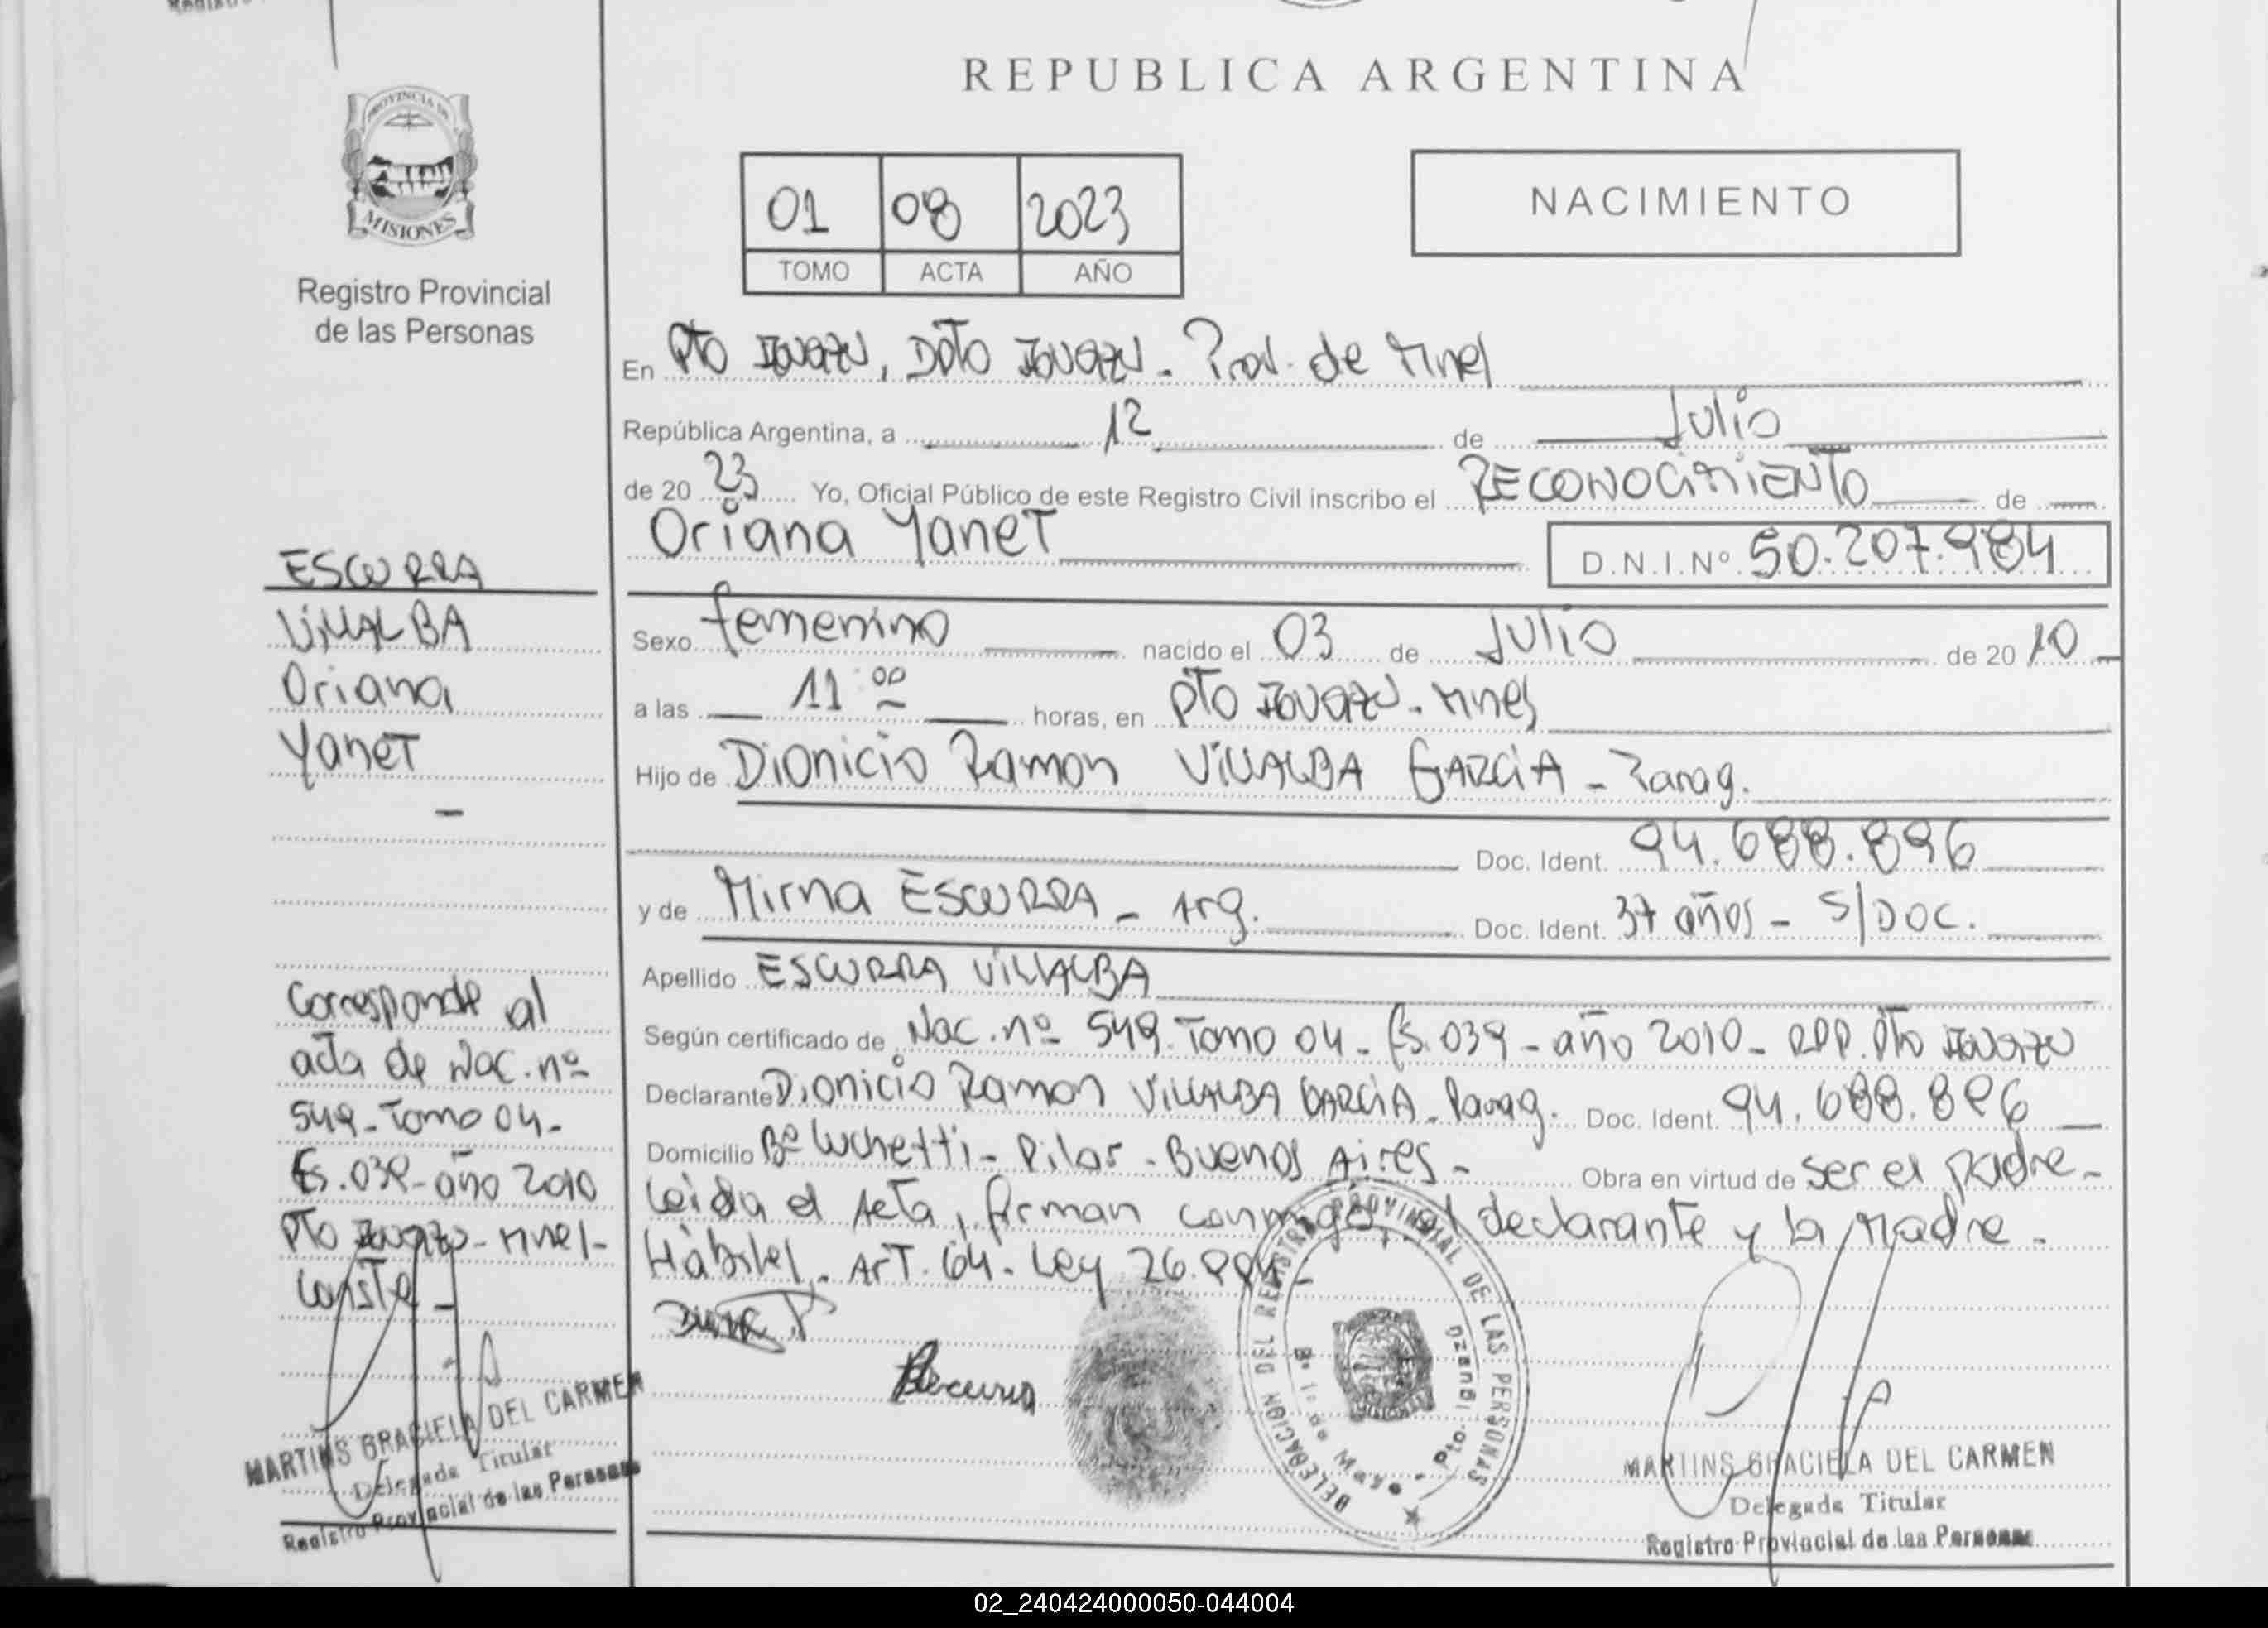 REPUBLICA ARGENTINA
PROVINCIA DE
MISIONES
Registro Provincial
de las Personas
01 08 2023
TOMO ACTA AÑO
NACIMIENTO
En Pto Iguazu, Dpto Iguazu - Prov. de Mnes
República Argentina, a 12 de Julio
de 20 23 Yo, Oficial Público de este Registro Civil inscribo el RECONOCIMIENTO de
Oriana Yanet D.N.I.Nº 50.207.984
Sexo femenino nacido el 03 de Julio de 20 10
a las 11:00 horas, en Pto Iguazu - Mnes
Hijo de Dionicio Ramon VILLALBA GARCIA - Parag.
Doc. Ident. 94.688.896
y de Mirna ESCURRA - Arg. Doc. Ident. 37 años - S/Doc.
Apellido ESCURRA VILLALBA
Según certificado de Nac. nº 549 - Tomo 04 - fs. 039 - año 2010 - RPP. Pto Iguazu
Declarante Dionicio Ramon VILLALBA GARCIA - Parag. Doc. Ident. 94.688.896
Domicilio Bº Luchetti - Pilar - Buenos Aires - Obra en virtud de ser el padre -
Leida el Acta, firman conmigo, el declarante y la Madre -
Hábiles - Art. 64 - Ley 26.994 -
ESCURRA
VILLALBA
Oriana
Yanet
-
Corresponde al
acta de Nac. nº
549 - Tomo 04 -
fs. 039 - año 2010
Pto Iguazu - Mnes -
Conste -
MARTINS GRACIELA DEL CARMEN
Delegada Titular
Registro Provincial de las Personas
DELEGACION DEL REGISTRO PROVINCIAL DE LAS PERSONAS
Bº 1º de Mayo - Pto. Iguazú
MARTINS GRACIELA DEL CARMEN
Delegada Titular
Registro Provincial de las Personas
02_240424000050-044004